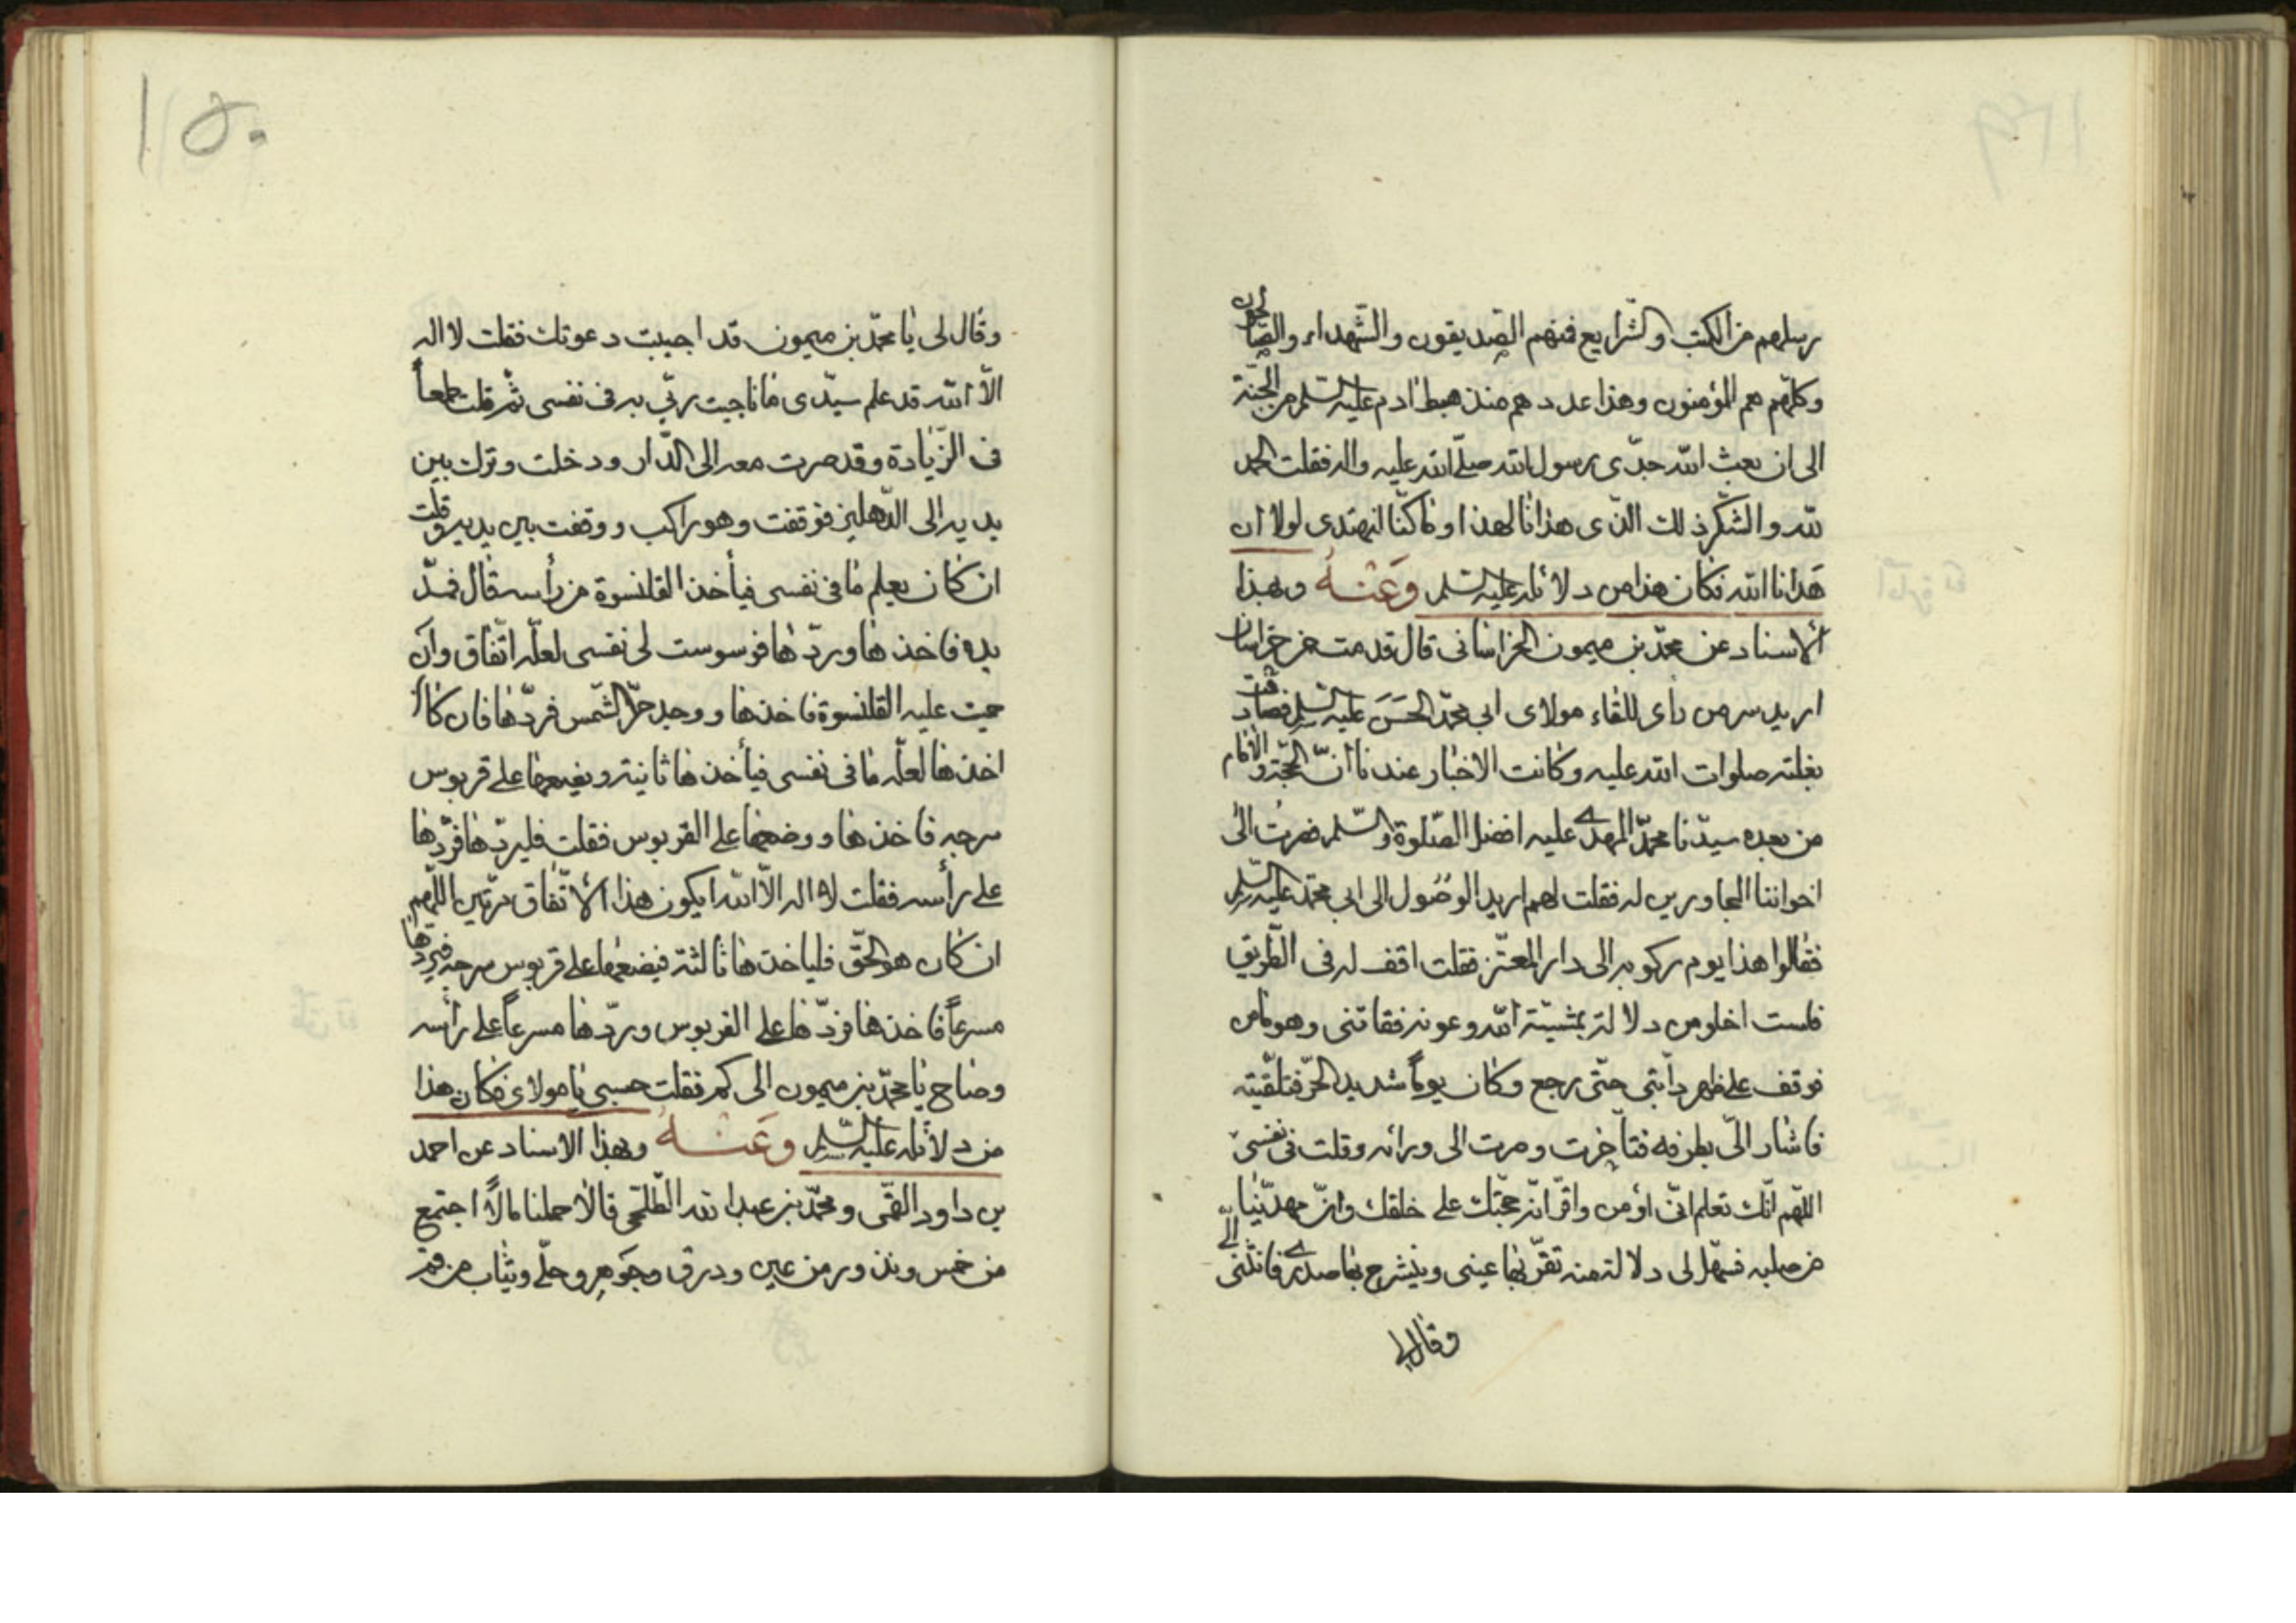 رسلهم من الكتب والشرايع فمنهم الصّديقون والشّهداء والصّالحون
وكلّهم هم المؤمنون وهذا عددهم منذ هبط ادم عليه السّلم من الجنّة
الى ان بعث الله جدّى رسول الله صلّى الله عليه واله فقلت الحمد
لله والشكر لك الذى هدانا لهذا وما كنّا لنهتدى لولا ان
هدانا الله فكان هذا من دلائله عليه السّلم وَعَنْهُ وبهذا
الاسناد عن محمّد بن ميمون الخراسانى قال قدمت من خراسان
اريد سر من رأى للقاء مولاى ابى محمّد الحسَن عليه السّلم فصادفت
بغلته صلوات الله عليه وكانت الاخبار عندنا أنّ الحجّة والامام
من بعده سيّدنا محمّد المهدى عليه افضل الصّلوة والسّلم فصرت الى
اخواننا المجاورين له فقلت لهم اريد الوصُول الى ابى محمّد عليه السّلم
فقالوا هذا يوم ركوبه الى دار المعتّز فقلت اقف له فى الطّريق
فلست اخلو من دلالة بمشيّة الله وعونه ففاتنى وهو ماض
فوقف على ظهر دابّتى حتّى رجع وكان يوماً شديد الحرّ فتلقّيته
فاشار الىّ بطرفه فتأخرت وصرت الى ورائه وقلت فى نفسى
اللّهم انّك تعلم انّى اومن واقرّ انّه حجّتك على خلقك وانّ مهديّنا
من صلبه فسهّل لى دلالة منه تقرّ بها عينى وينشرح بها صدرى فانثنى الىّ
وقال لى
١٥٠
وقال لى يا محمّد بن ميمون قد اجيبت دعوتك فقلت لا اله
الّا الله قد علم سيّدى ما ناجيت ربّى به فى نفسى ثمّ قلت طمعاً
فى الزّيادة وقد صرت معه الى الدّار ودخلت وترك بين
يديه الى الدّهليز فوقفت وهو راكب ووقفت بين يديه وقلت
ان كان يعلم ما فى نفسى فيأخذ القلنسوة من رأسه قال فمدّ
يده فاخذها وردّها فوسوست لى نفسى لعلّه اتّفاق وان
حميت عليه القلنسوة فاخذها ووجد حرّ الشّمس فردّها فان كان
اخذها لعلّه ما فى نفسى فيأخذها ثانية ويضعها على قربوس
سرجه فاخذها ووضعها على القربوس فقلت فليردّها فردّها
على رأسه فقلت لا اله الّا الله ايكون هذا الاتّفاق مرّتين اللّهم
ان كان هو الحقّ فلياخذها ثالثة فيضعها على قربوس سرجه فيردّها
مسرعاً فاخذها فردّها على القربوس وردّها مسرعاً على رأسه
وصاح يا محمّد بن ميمون الى كم فقلت حسبى يا مولاى فكان هذا
من دلائله عليه السّلم وَعَنْهُ وبهذا الاسناد عن احمد
بن داود القمّى ومحمّد بن عبد الله الطّلحى قالا حملنا مالاً اجتمع
من خمس ونذور من عين وورق وجوهر وحلّى وثياب من قم